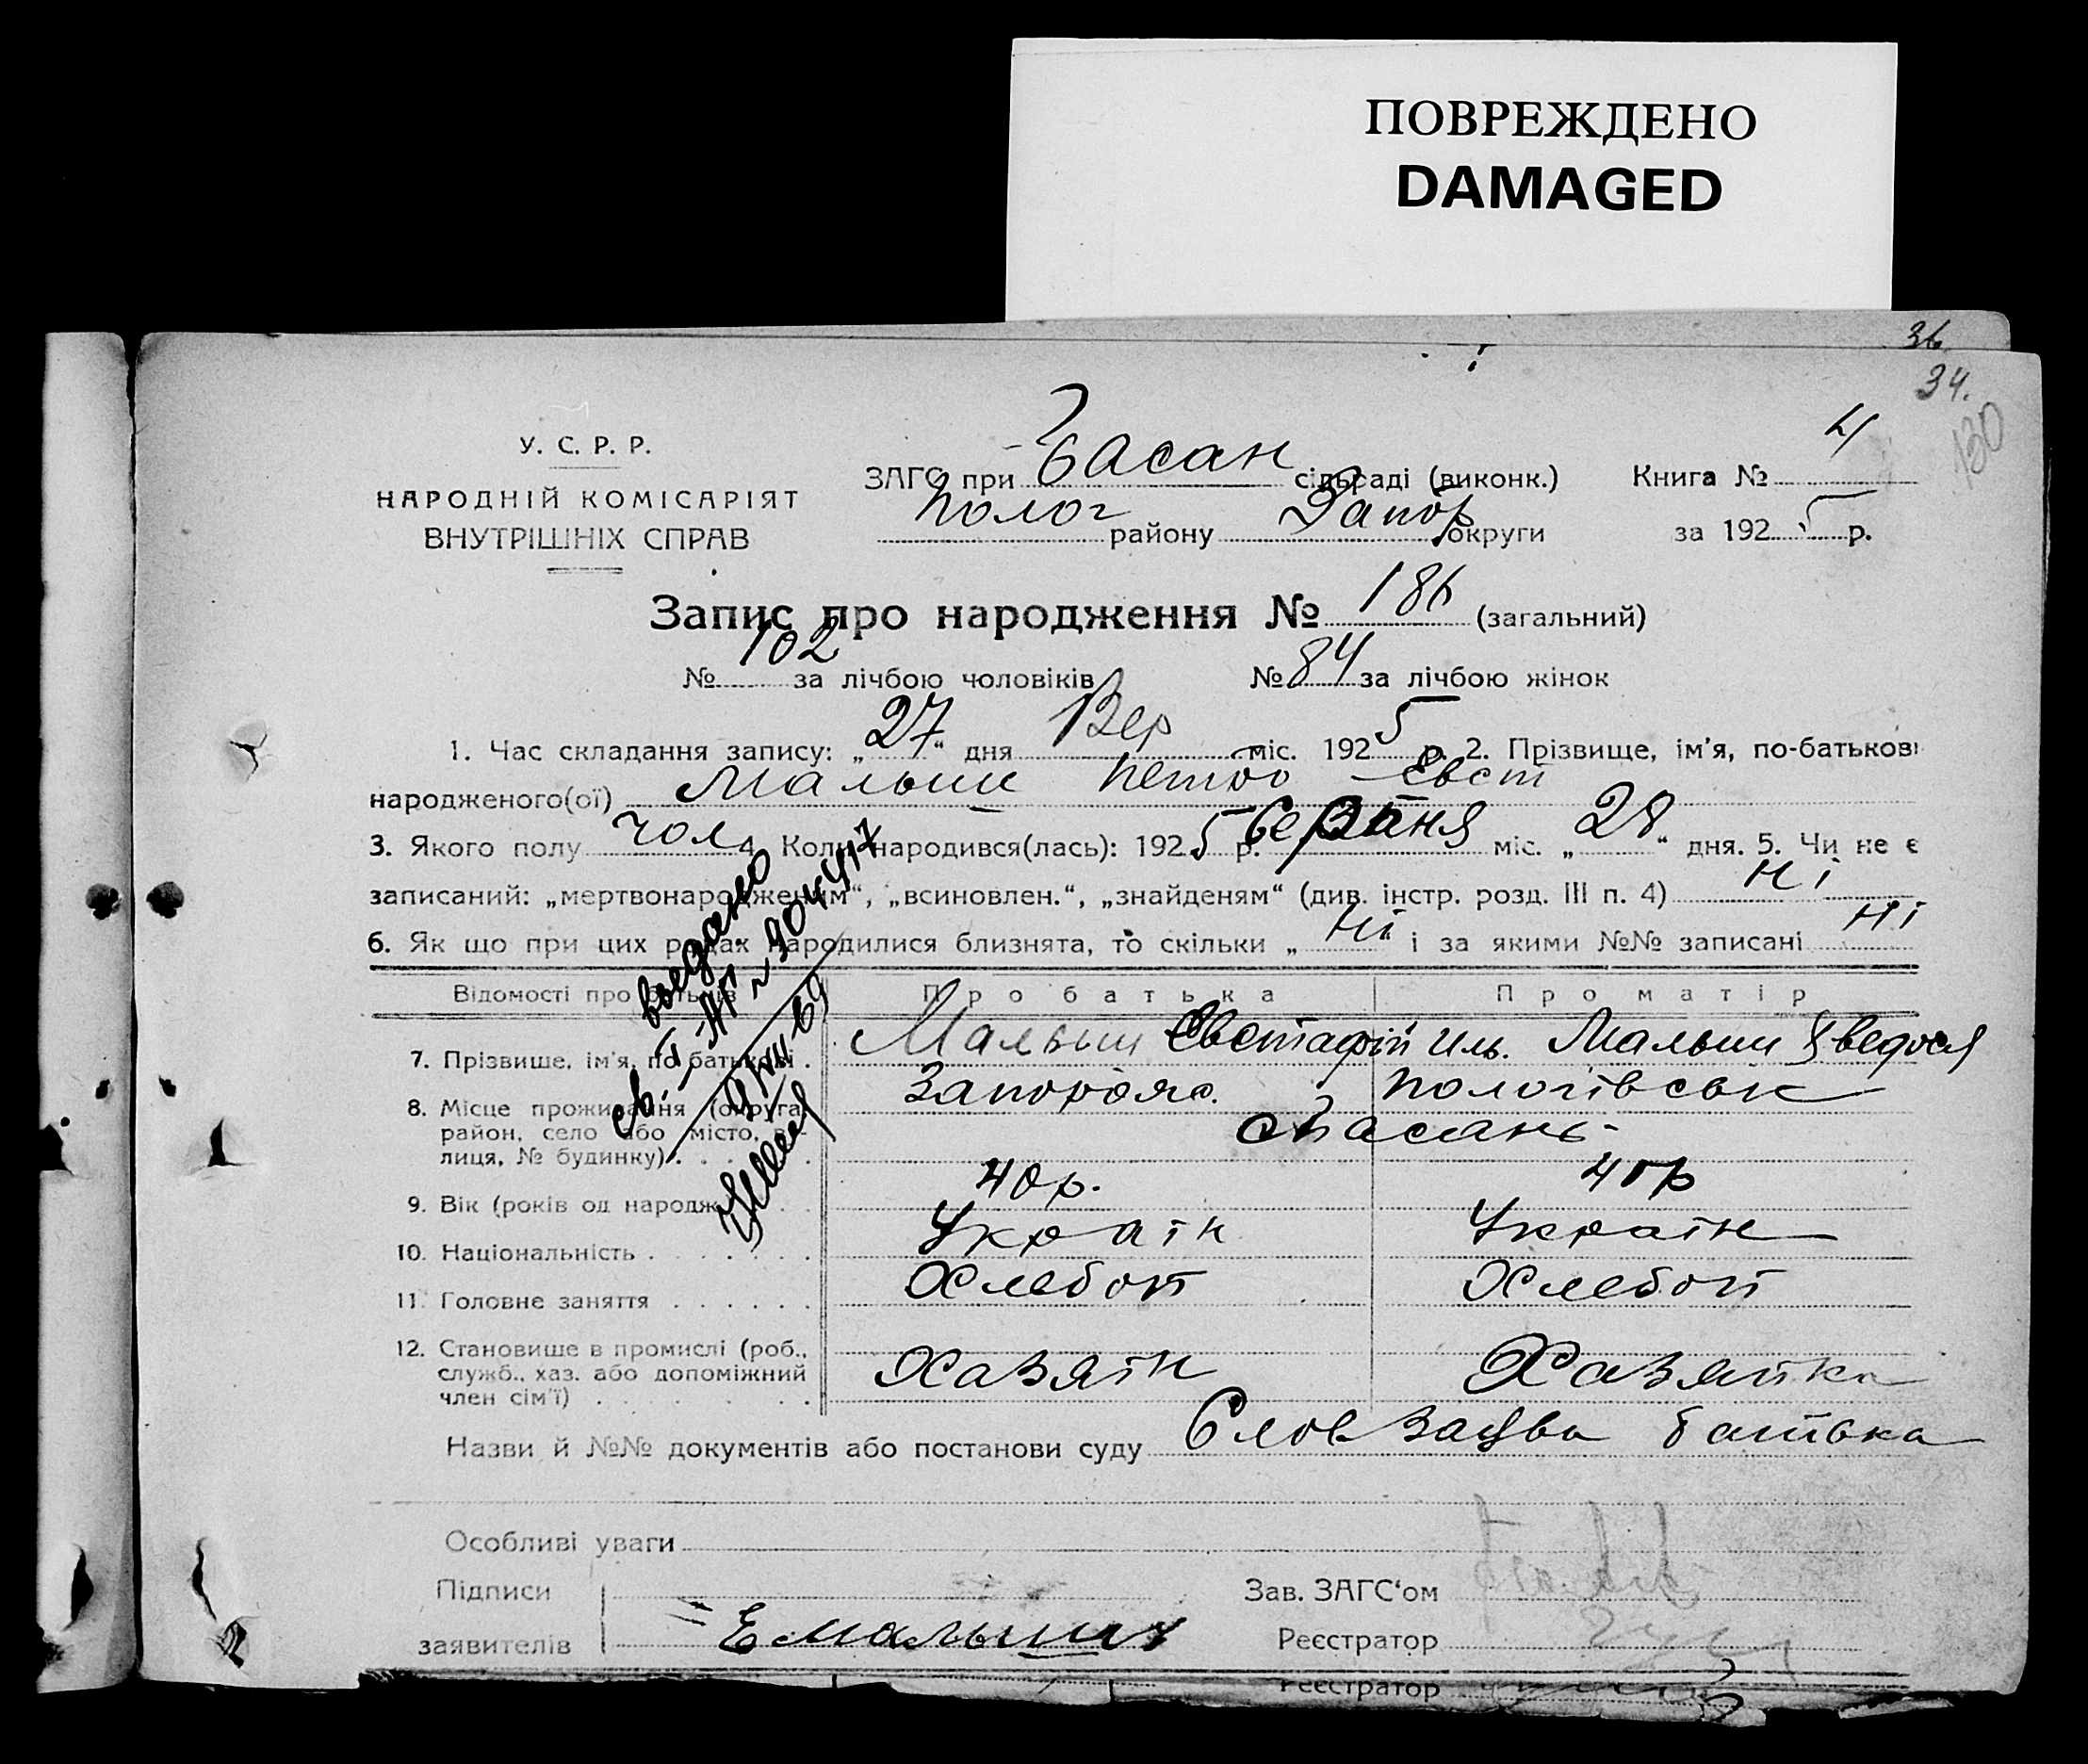 ПОВРЕЖДЕНО
DAMAGED
36
34.
130
У. С. Р. Р.
НАРОДНІЙ КОМІСАРІЯТ
ВНУТРІШНІХ СПРАВ
ЗАГС при Басан сільраді (виконк.) Книга № 4
Полог району Запор округи за 1925 р.
Запис про народження № 186 (загальний)
№ 102 за лічбою чоловіків № 84 за лічбою жінок
1. Час складання запису: „27“ дня Вер міс. 1925 р. 2. Прізвище, ім'я, по-батькові
народженого(ої) Малыш Петро Евст
3. Якого полу чол 4. Коли народився(лась): 1925 р. Серпня міс. „28“ дня. 5. Чи не є
записаний: „мертвонародженим“, „всиновлен.“, „знайденям“ (див. інстр. розд. III п. 4) Ні
6. Як що при цих родах народилися близнята, то скільки „Ні і за якими №№ записані Ні
Відомості про батьків Про батька Про матір
7. Прізвише, ім'я, по батькові . Малыш Евстафій Иль. Малыш
8. Місце проживання (округа, Запоріж. Пологівськ
район, село або місто, ву- Басань
лиця, № будинку) . . . .
9. Вік (років од народж. 40 р. 40 р
10. Національність . . . . . . Україн Україн
11. Головне заняття . . . . . . Хлебоп Хлебоп
12. Становише в промислі (роб.,
служб., хаз. або допоміжний Хазяїн Хазяйка
член сім'ї) . . . . . . . .
Назви й №№ документів або постанови суду Слов заява батька
Особливі уваги
Підписи Зав. ЗАГС‘ом
заявителів Е Малыш Реєстратор
Реєстратор